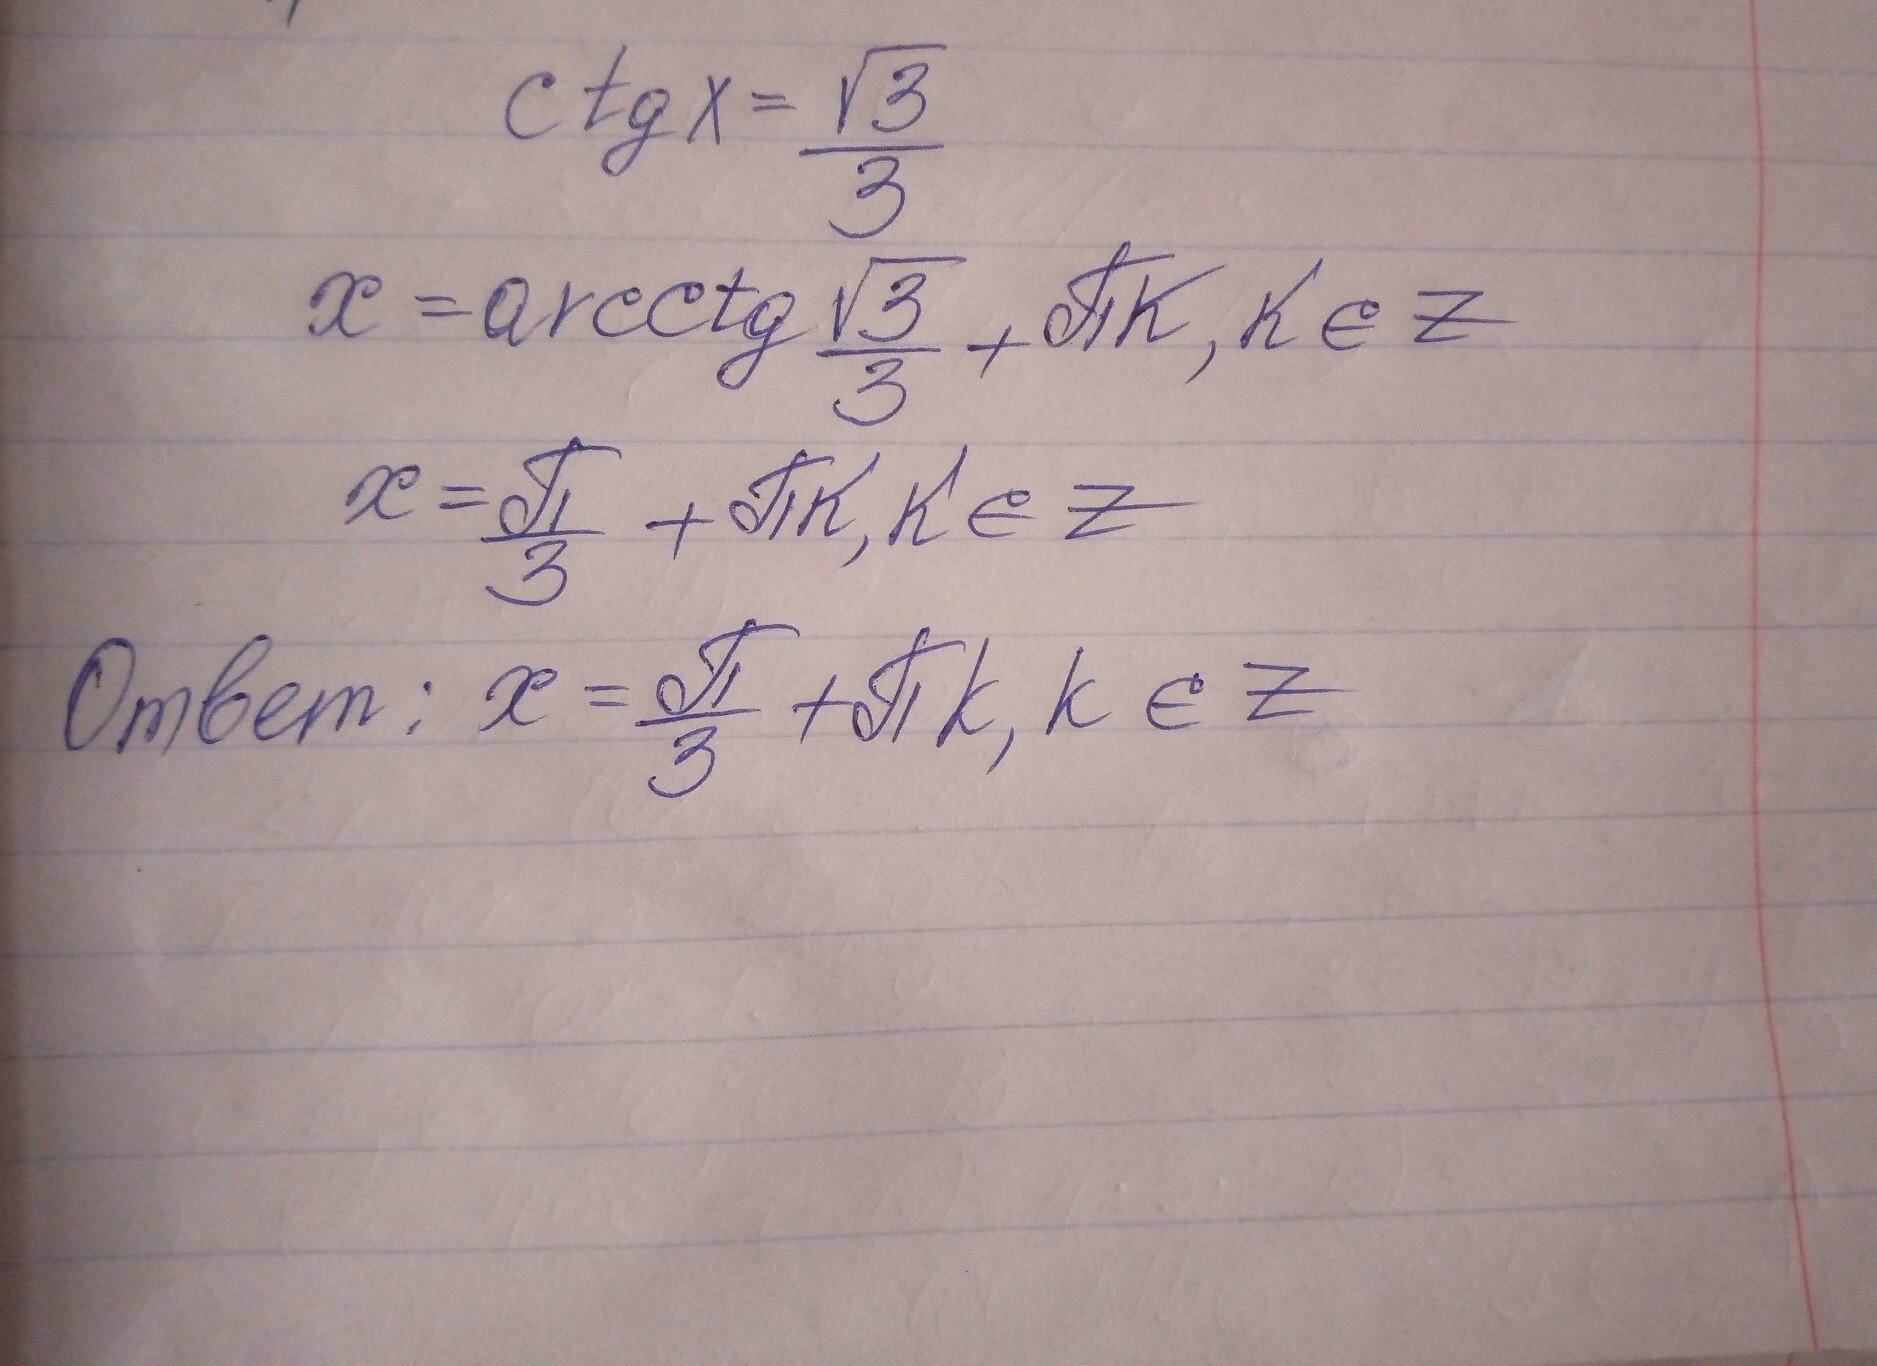 ctgx = √3/3
x = arcctg √3/3 + πк, к ∈ Z
x = π/3 + πк, к ∈ Z
Ответ: x = π/3 + πk, k ∈ Z